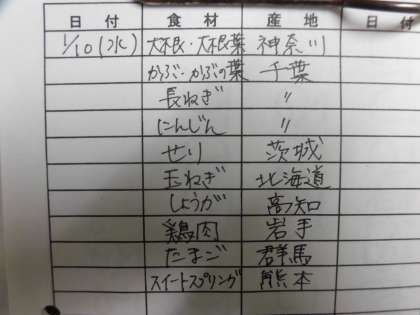 日付 食材 産地 日付
1/10(水) 大根・大根葉 神奈川
かぶ・かぶの葉 千葉
長ねぎ 〃
にんじん 〃
せり 茨城
玉ねぎ 北海道
しょうが 高知
鶏肉 岩手
たまご 群馬
スイートスプリング 熊本